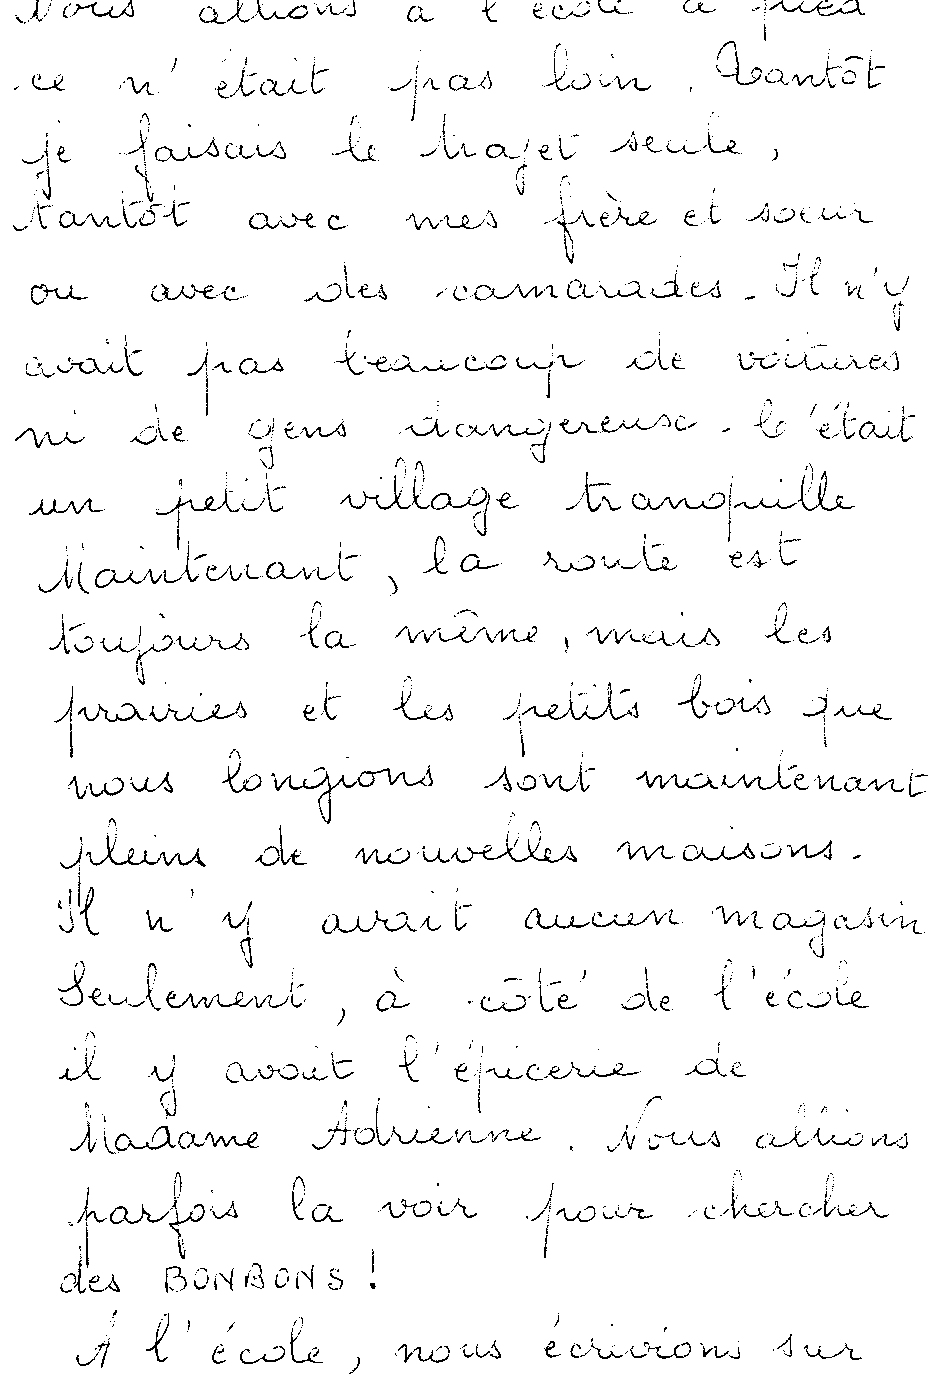 Nous allions à l'école à pied
ce n'était pas loin. Tantôt
je faisais le trajet seule,
tantôt avec mes frère et soeur
ou avec des camarades. Il n'y
avait pas beaucoup de voitures
ni de gens dangereux. C'était
un petit village tranquille
Maintenant, la route est
toujours la même, mais les
prairies et les petits bois que
nous longions sont maintenant
pleins de nouvelles maisons.
Il n'y avait aucun magasin
Seulement, à côté de l'école
il y avait l'épicerie de
Madame Adrienne. Nous allions
parfois la voir pour chercher
des BONBONS !
À l'école, nous écrivions sur